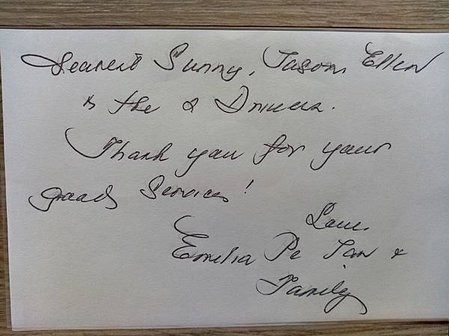 Dearest Sunny, Jason, Ellen
& the 2 Drivers.
Thank you for your
good Services!
Love,
Emelia Pe Tan &
Family